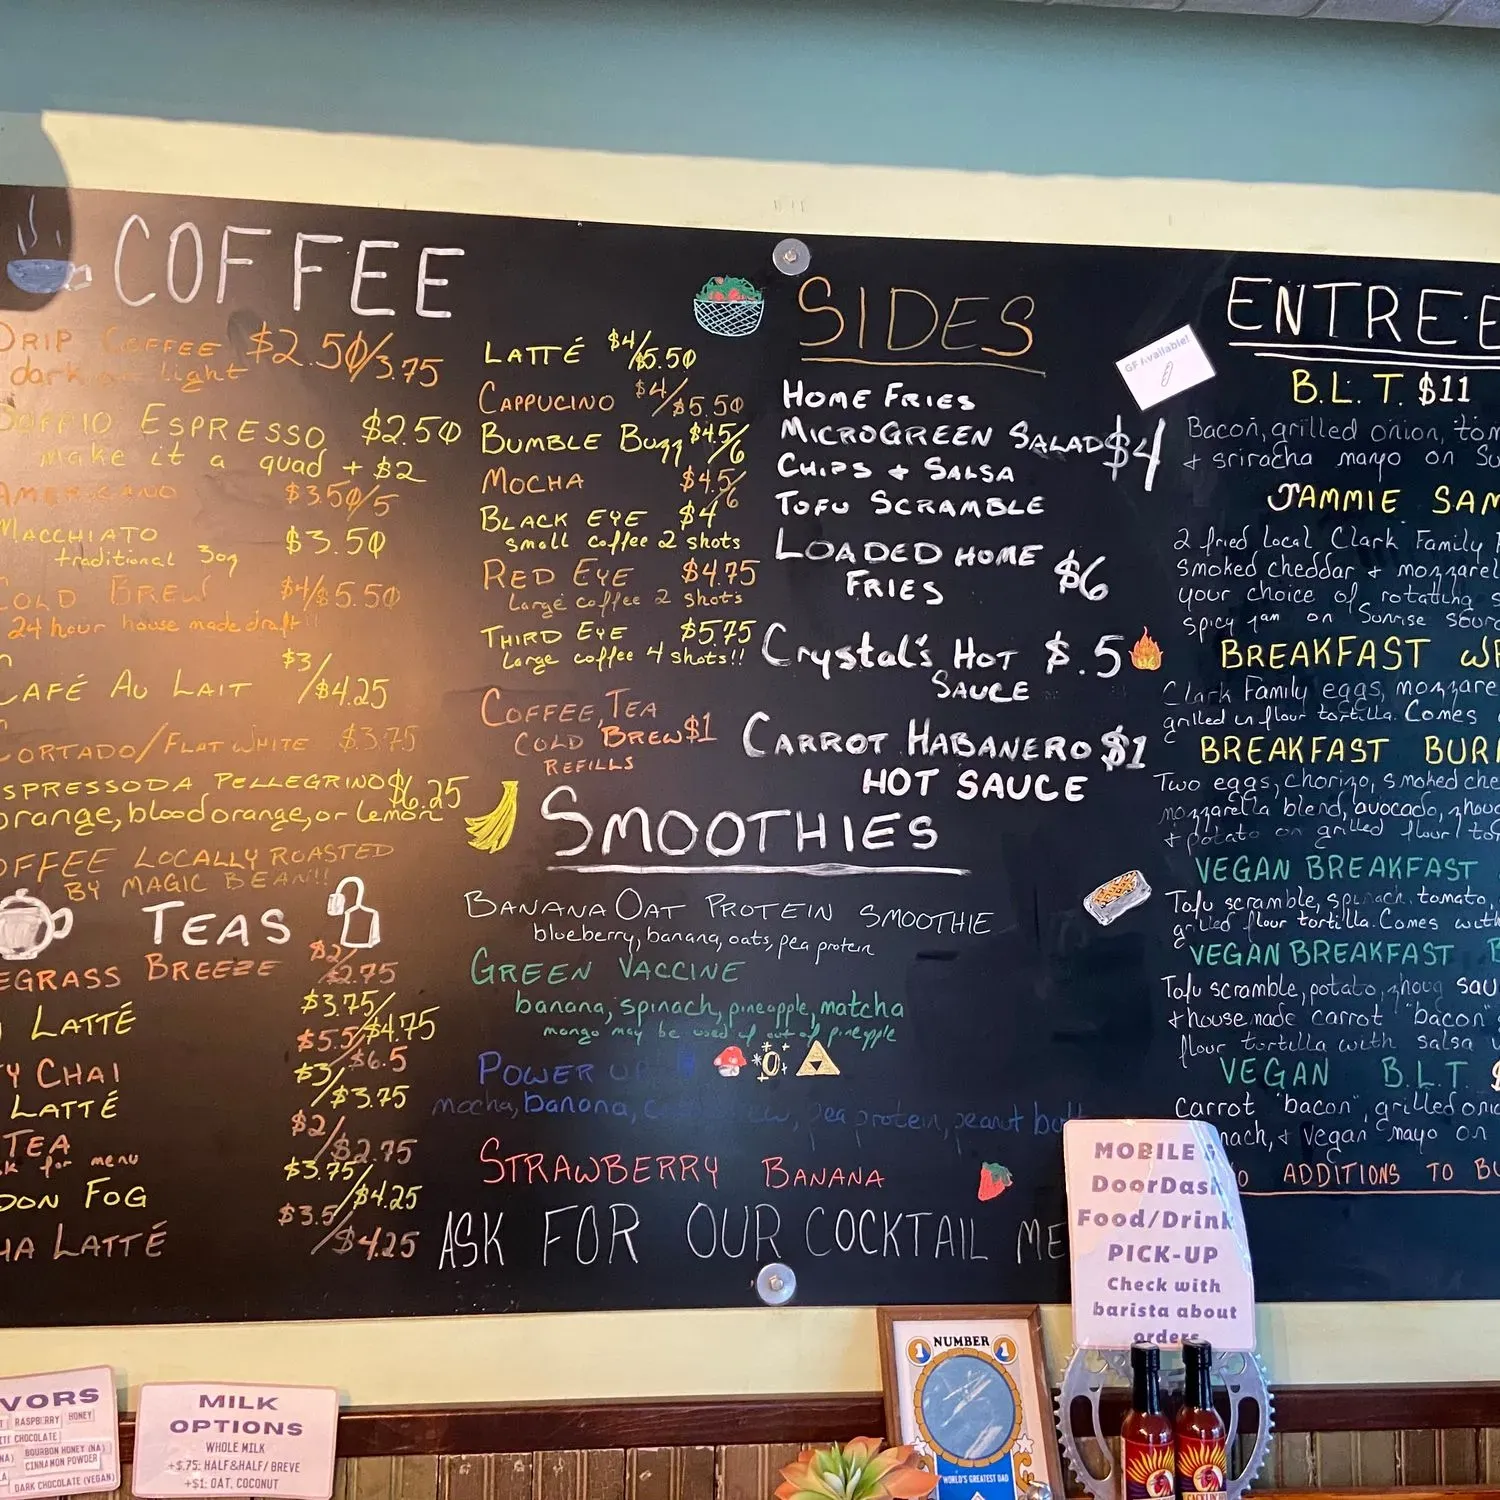 COFFEE
DRIP COFFEE $2.50/3.75
dark or light
DOPPIO ESPRESSO $2.50
make it a quad + $2
AMERICANO $3.50/5
MACCHIATO $3.50
traditional 3oz
COLD BREW $4/$5.50
24 hour house made draft!!
CAFÉ AU LAIT $3/$4.25
CORTADO/FLAT WHITE $3.75
ESPRESSODA PELLEGRINO $6.25
orange, blood orange, or lemon
COFFEE LOCALLY ROASTED
BY MAGIC BEAN!!
TEAS
EGRASS BREEZE $2/2.75
LATTÉ $3.75/$4.75
Y CHAI $5.5/$6.5
LATTÉ $3/$3.75
TEA $2/$2.75
k for menu
DON FOG $3.75/$4.25
HA LATTÉ $3.5/$4.25
LATTÉ $4/$5.50
CAPPUCINO $4/$5.50
BUMBLE BUZZ $4.5/6
MOCHA $4.5/6
BLACK EYE $4
small coffee 2 shots
RED EYE $4.75
Large coffee 2 shots
THIRD EYE $5.75
Large coffee 4 shots!!
COFFEE, TEA
COLD BREW $1
REFILLS
SIDES
HOME FRIES
MICROGREEN SALAD $4
CHIPS + SALSA
TOFU SCRAMBLE
LOADED HOME
FRIES $6
Crystal's HOT $.5
SAUCE
CARROT HABANERO $1
HOT SAUCE
SMOOTHIES
BANANA OAT PROTEIN SMOOTHIE
blueberry, banana, oats, pea protein
GREEN VACCINE
banana, spinach, pineapple, matcha
mango may be used if out of pineapple
POWER UP
mocha, banana, pea protein, peanut but
STRAWBERRY BANANA
ASK FOR OUR COCKTAIL ME
GF Available!
ENTRE·E
B.L.T. $11
Bacon, grilled onion, tom
+ sriracha mayo on Su
JAMMIE SAM
2 fried local Clark Family
smoked cheddar + mozzarel
your choice of rotating s
spicy jam on Sunrise sour
BREAKFAST WR
Clark Family eggs, mozzare
grilled in flour tortilla. Comes
BREAKFAST BUR
Two eggs, chorizo, smoked che
mozzarella blend, avocado, zhoug
+ potato on grilled flour tor
VEGAN BREAKFAST
Tofu scramble, spinach, tomato,
grilled flour tortilla. Comes with
VEGAN BREAKFAST B
Tofu scramble, potato, zhoug sau
+ housemade carrot "bacon"
flour tortilla with salsa
VEGAN B.L.T. $
Carrot "bacon", grilled onio
nach, + vegan mayo on
O ADDITIONS TO BU
MOBILE
DoorDash
Food/Drink
PICK-UP
Check with
barista about
orders
VORS
RASPBERRY HONEY
CHOCOLATE
BOURBON HONEY (NA)
CINNAMON POWDER
DARK CHOCOLATE (VEGAN)
MILK
OPTIONS
WHOLE MILK
+$.75: HALF&HALF/ BREVE
+$1: OAT, COCONUT
1 NUMBER 1
WORLD'S GREATEST DAD